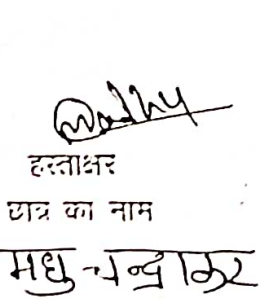 Madhu
हस्ताक्षर
छात्र का नाम
मधु चन्द्राकर